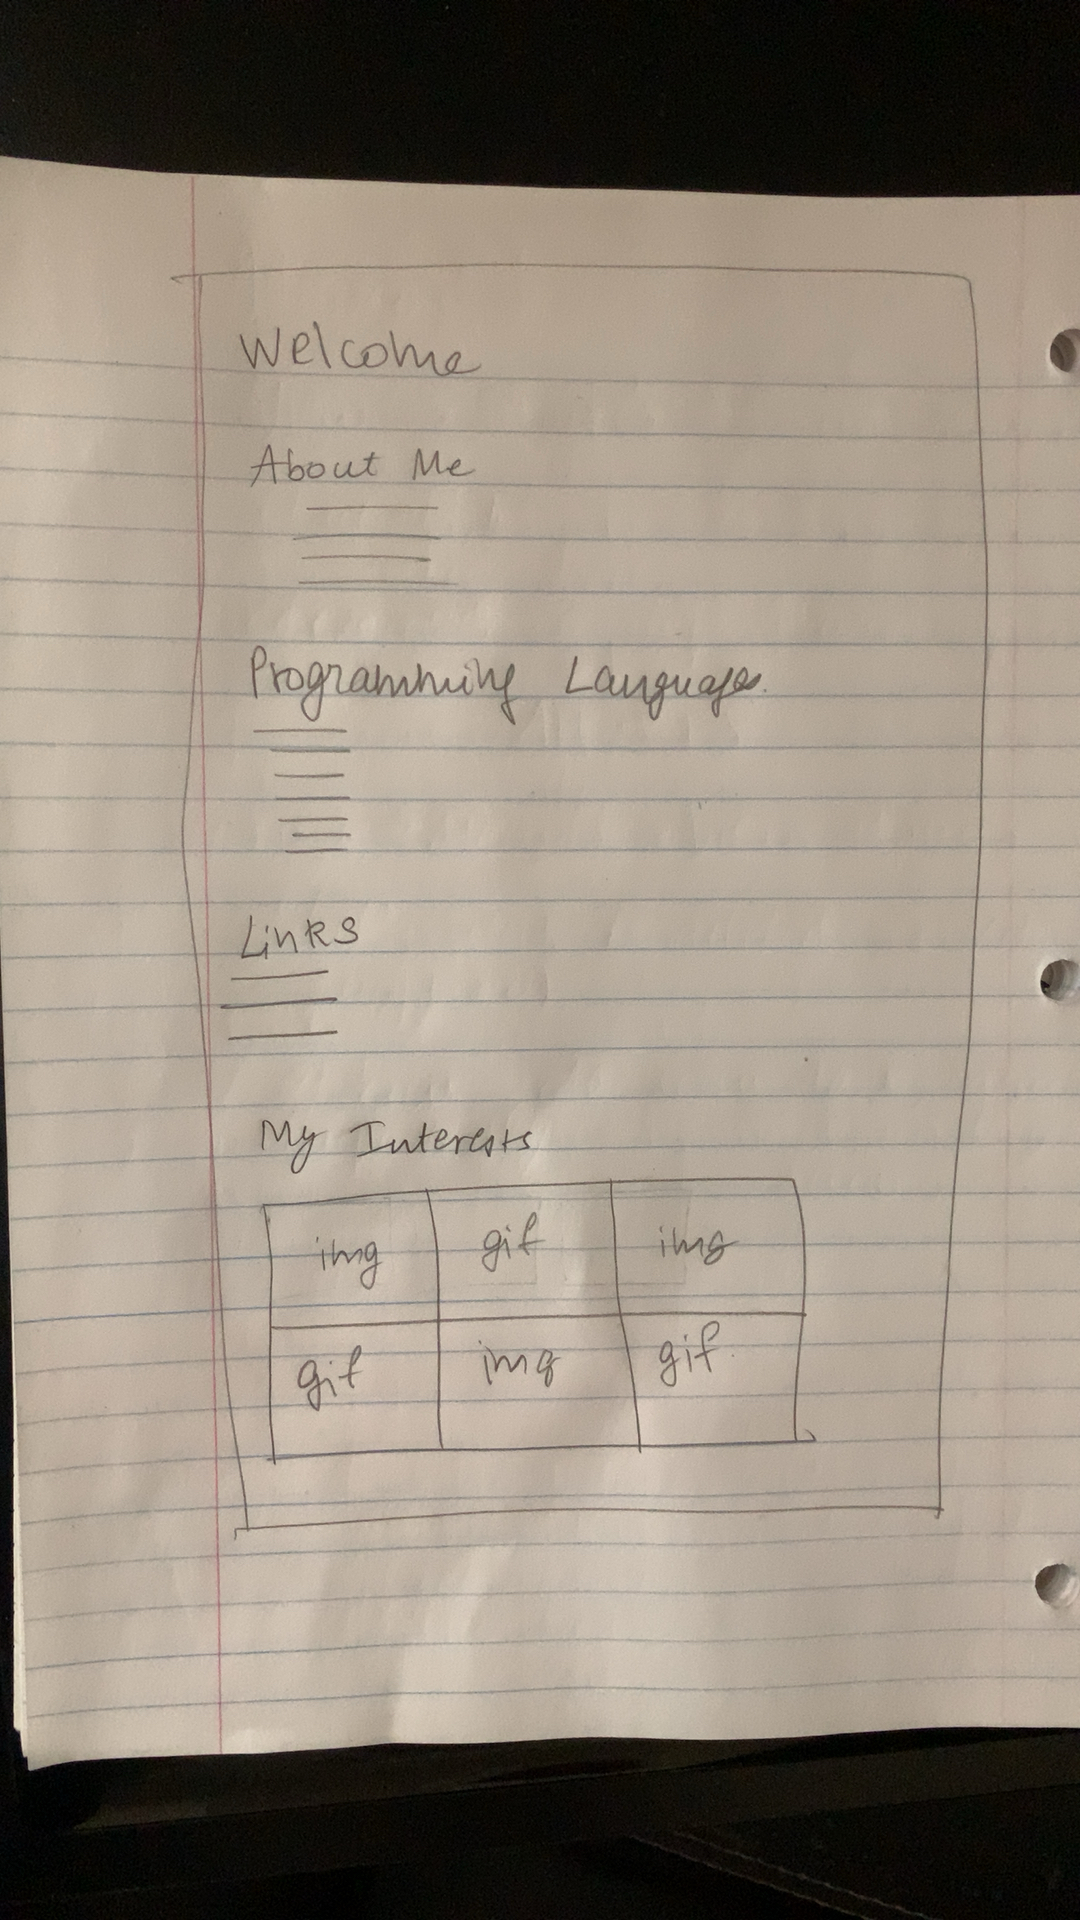 Welcome
About Me
Programming Languages.
Links
My Interests
img gif img
gif img gif.